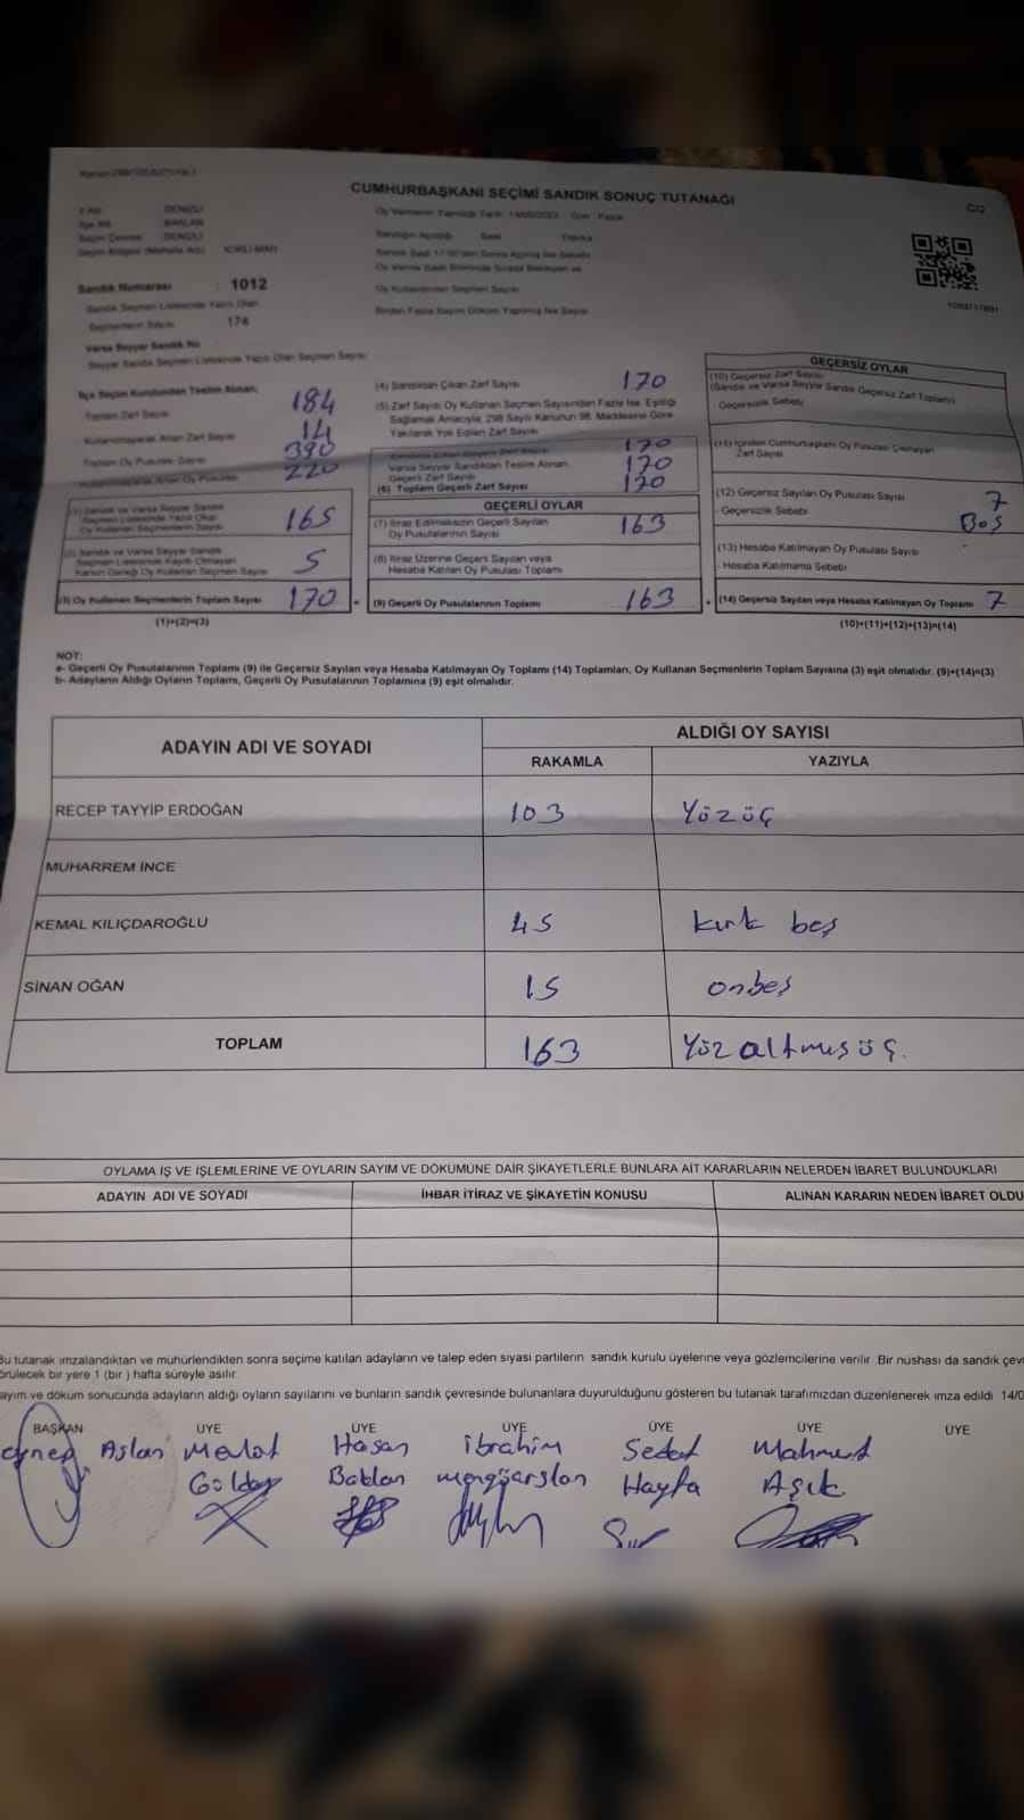 CUMHURBAŞKANI SEÇİMİ SANDIK SONUÇ TUTANAĞI
İl Adı DENİZLİ
Seçim Çevresi DENİZLİ
Sandık Numarası : 1012
Sandık Seçmen Listesinde Yazılı Olan
Seçmenlerin Sayısı 174
Varsa Seyyar Sandık No
Seyyar Sandık Seçmen Listesinde Yazılı Olan Seçmen Sayısı
İlçe Seçim Kurulundan Teslim Alınan,
Toplam Zarf Sayısı 184
Kullanılmayarak Artan Zarf Sayısı 14
Toplam Oy Pusulası Sayısı 390
220
(1) Sandık ve Varsa Seyyar Sandık
Seçmen Listesinde Yazılı Olup
Oy Kullanan Seçmenlerin Sayısı 165
(2) Sandık ve Varsa Seyyar Sandık
Seçmen Listesinde Kayıtlı Olmayan
Kanun Gereği Oy Kullanan Seçmen Sayısı 5
(3) Oy Kullanan Seçmenlerin Toplam Sayısı 170
(1)+(2)=(3)
(4) Sandıktan Çıkan Zarf Sayısı 170
(5) Zarf Sayısı Oy Kullanan Seçmen Sayısından Fazla İse, Eşitliği
Sağlamak Amacıyla, 298 Sayılı Kanunun 98. Maddesine Göre
Yakılarak Yok Edilen Zarf Sayısı
170
Varsa Seyyar Sandıktan Teslim Alınan
Geçerli Zarf Sayısı 170
(6) Toplam Geçerli Zarf Sayısı 170
GEÇERLİ OYLAR
(7) İtiraz Edilmeksizin Geçerli Sayılan
Oy Pusulalarının Sayısı 163
(8) İtiraz Üzerine Geçerli Sayılan veya
Hesaba Katılan Oy Pusulası Toplamı
(9) Geçerli Oy Pusulalarının Toplamı 163
GEÇERSİZ OYLAR
(10) Geçersiz Zarf Sayısı
(Sandık ve Varsa Seyyar Sandık Geçersiz Zarf Toplamı)
Geçersizlik Sebebi
(11) İçinden Cumhurbaşkanı Oy Pusulası Çıkmayan
Zarf Sayısı
(12) Geçersiz Sayılan Oy Pusulası Sayısı 7
Geçersizlik Sebebi Boş
(13) Hesaba Katılmayan Oy Pusulası Sayısı
Hesaba Katılmama Sebebi
(14) Geçersiz Sayılan veya Hesaba Katılmayan Oy Toplamı 7
(10)+(11)+(12)+(13)=(14)
NOT:
a- Geçerli Oy Pusulalarının Toplamı (9) ile Geçersiz Sayılan veya Hesaba Katılmayan Oy Toplamı (14) Toplamları, Oy Kullanan Seçmenlerin Toplam Sayısına (3) eşit olmalıdır. (9)+(14)=(3)
b- Adayların Aldığı Oyların Toplamı, Geçerli Oy Pusulalarının Toplamına (9) eşit olmalıdır.
ADAYIN ADI VE SOYADI
ALDIĞI OY SAYISI
RAKAMLA YAZIYLA
RECEP TAYYİP ERDOĞAN 103 Yüzüç
MUHARREM İNCE
KEMAL KILIÇDAROĞLU 45 kırk beş
SİNAN OĞAN 15 onbeş
TOPLAM 163 Yüz altmış üç.
OYLAMA İŞ VE İŞLEMLERİNE VE OYLARIN SAYIM VE DÖKÜMÜNE DAİR ŞİKAYETLERLE BUNLARA AİT KARARLARIN NELERDEN İBARET BULUNDUKLARI
ADAYIN ADI VE SOYADI İHBAR İTİRAZ VE ŞİKAYETİN KONUSU ALINAN KARARIN NEDEN İBARET OLDU
Bu tutanak imzalandıktan ve mühürlendikten sonra seçime katılan adayların ve talep eden siyasi partilerin sandık kurulu üyelerine veya gözlemcilerine verilir. Bir nüshası da sandık çev
örülecek bir yere 1 (bir) hafta süreyle asılır.
ayım ve döküm sonucunda adayların aldığı oyların sayılarını ve bunların sandık çevresinde bulunanlara duyurulduğunu gösteren bu tutanak tarafımızdan düzenlenerek imza edildi. 14/0
BAŞKAN ÜYE ÜYE ÜYE ÜYE ÜYE ÜYE
Aslan Hasan İbrahim Sedat Mahmut
Hayta Aşık